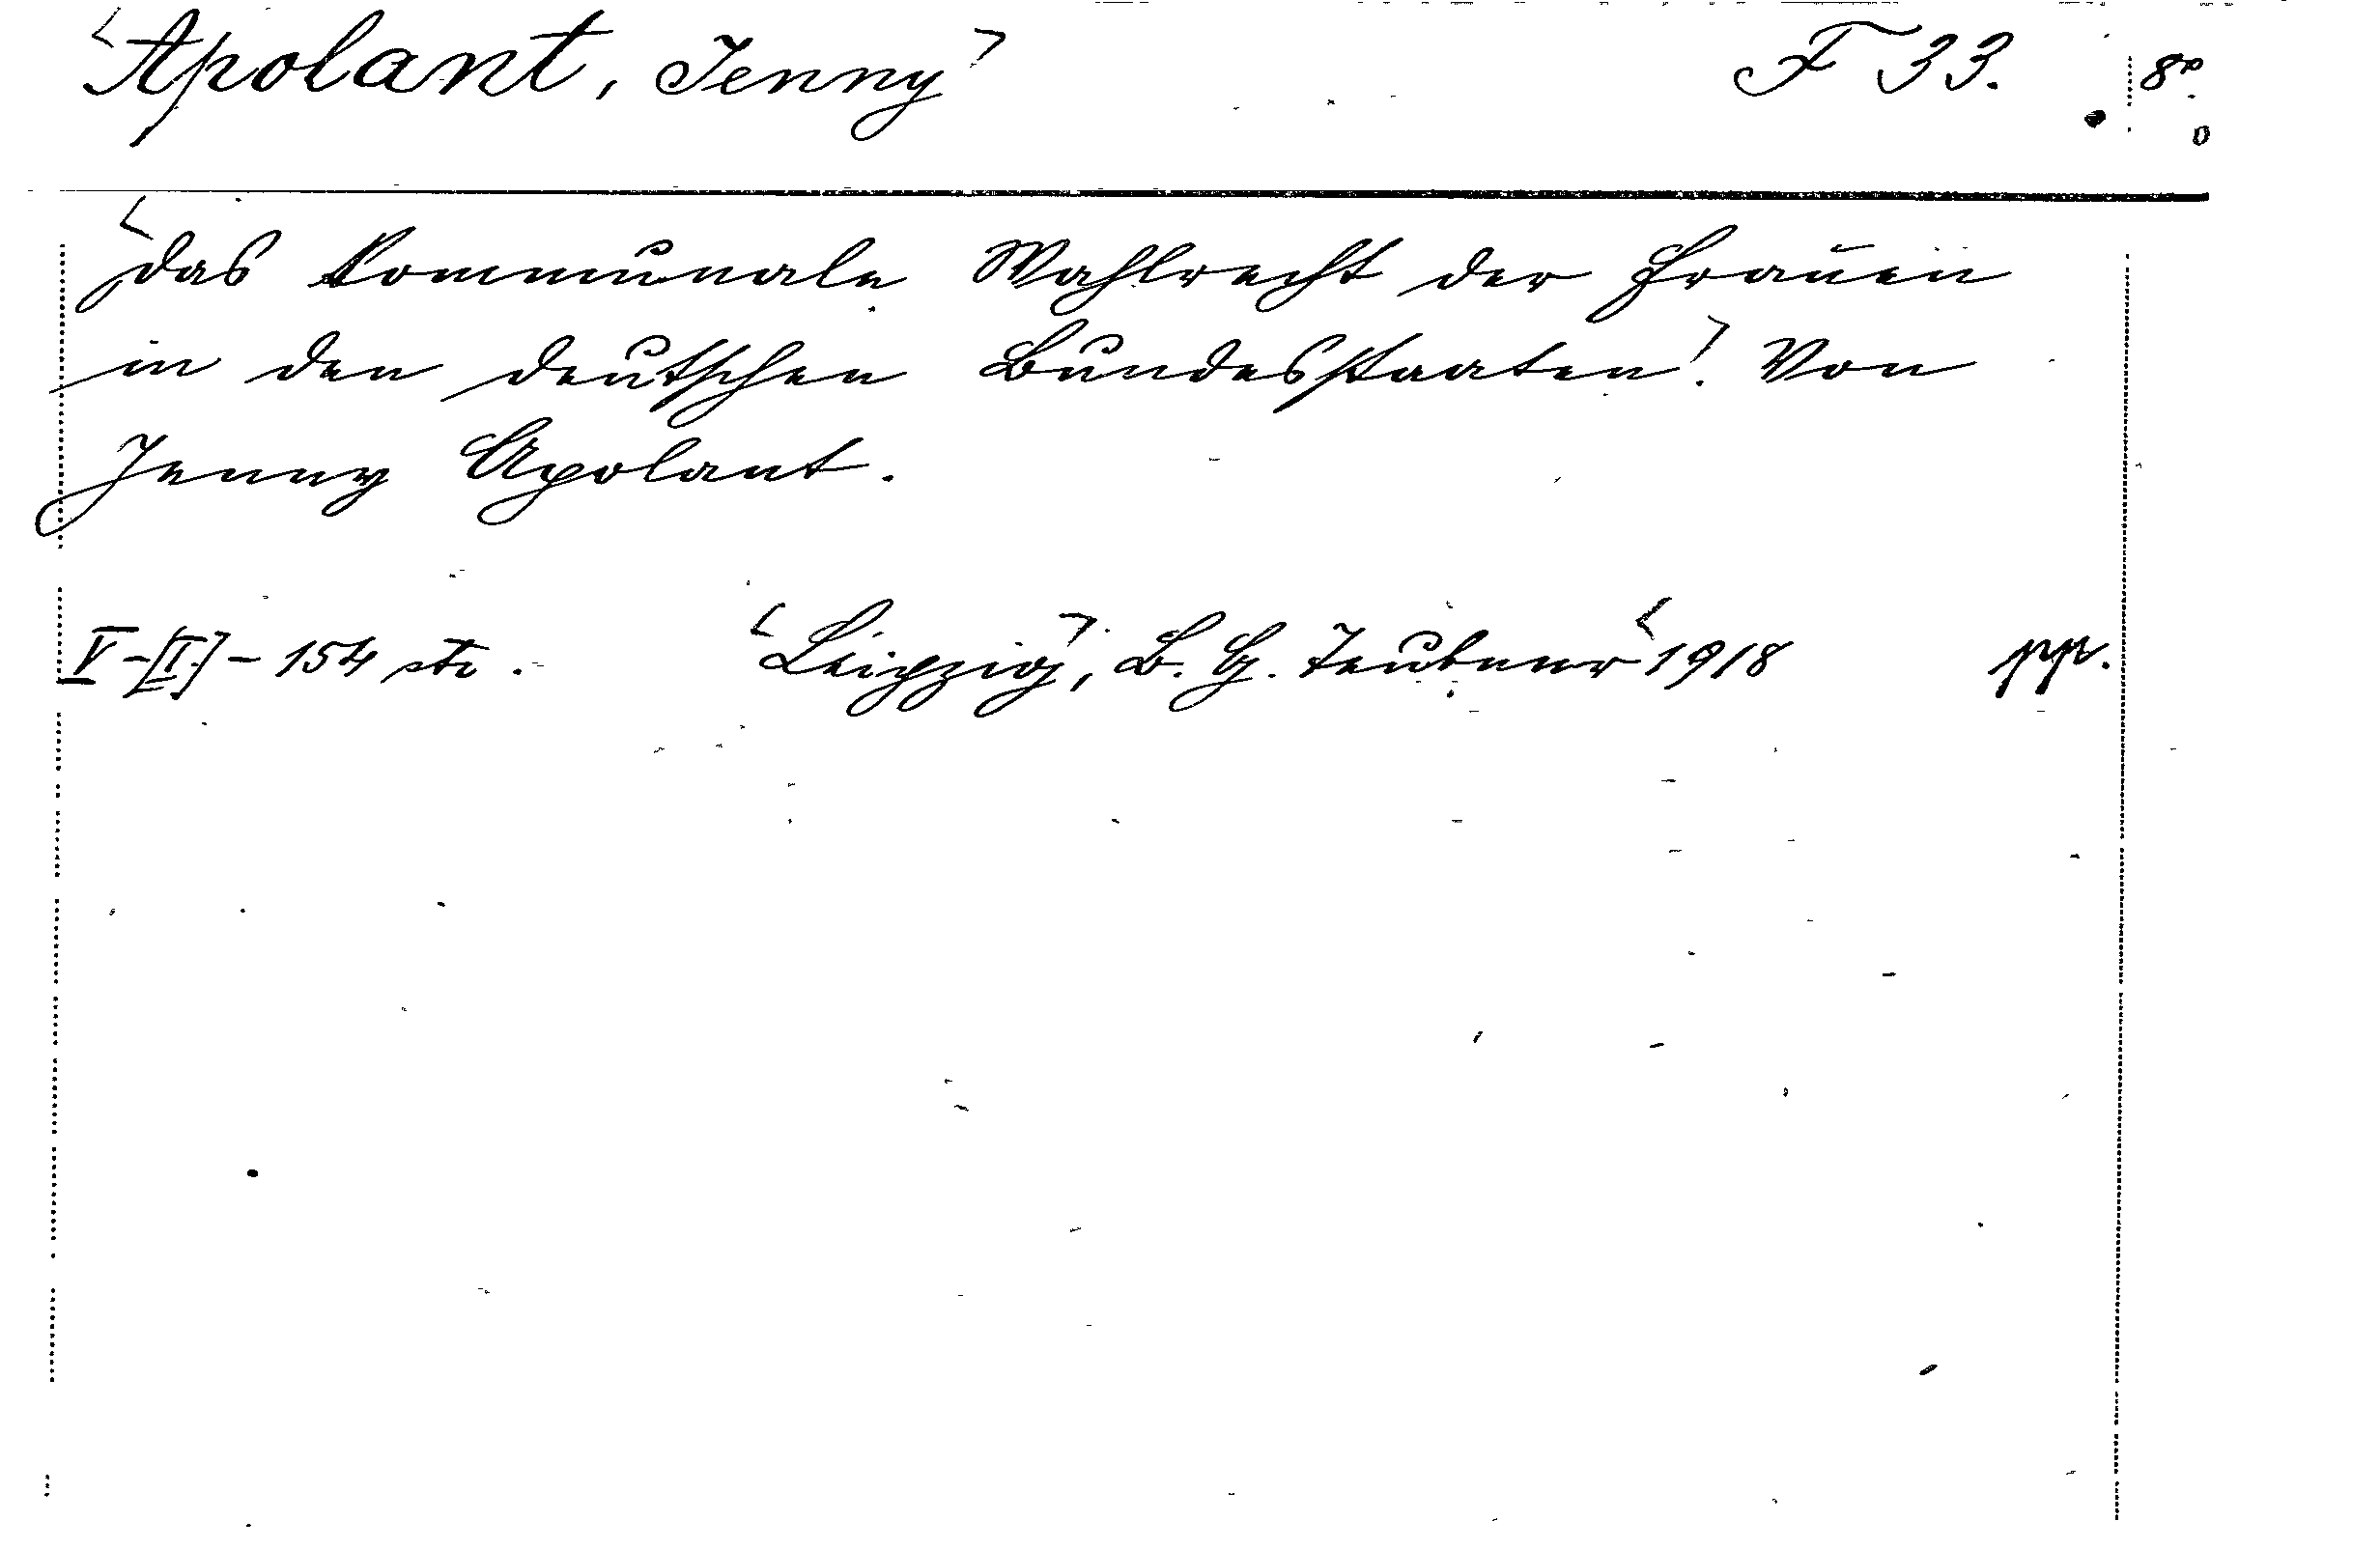 Apolant, Jenny F 33. 8°
Das kommunale Wahlrecht der Frauen
in den deutschen Bundesstaaten. Von
Jenny Apolant.
V-[I]-154 str. Leipzig, B. G. Teubner 1918 pp.